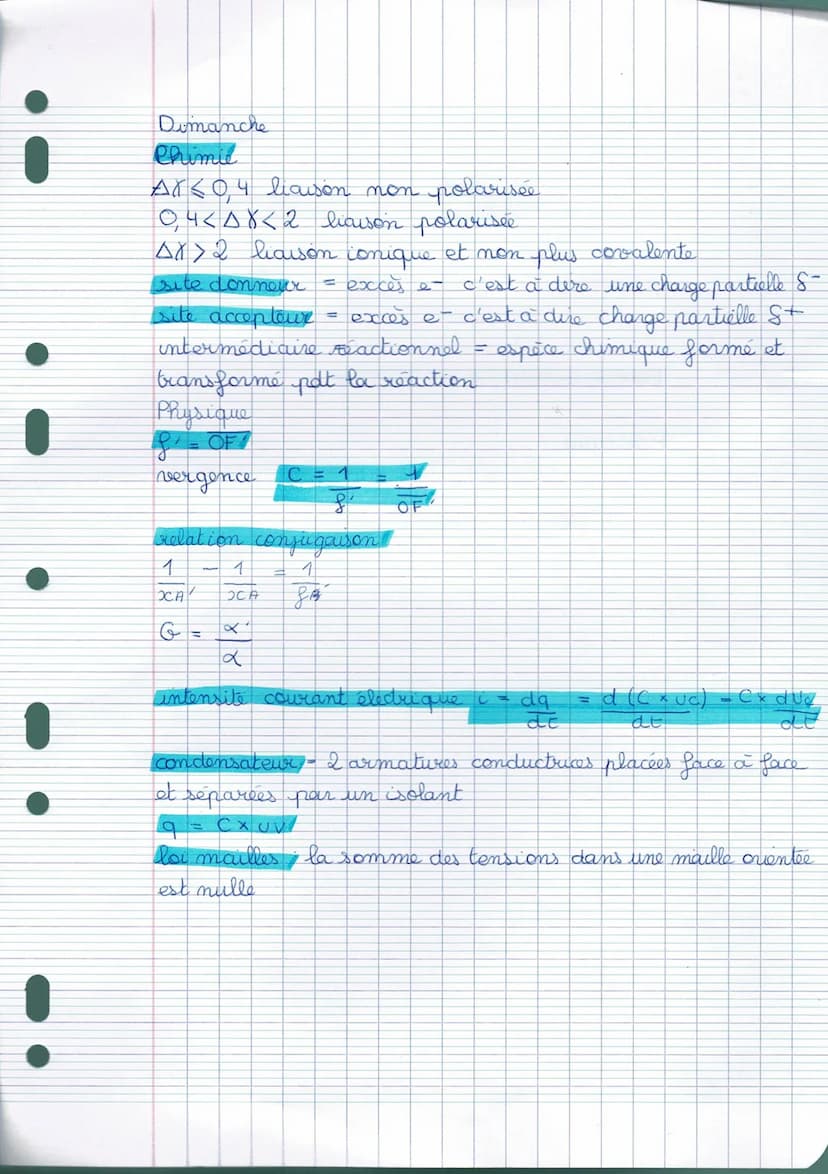 Dimanche
Chimie
Δχ ⩽ 0,4 liaison non polarisée
0,4 < Δχ < 2 liaison polarisée
Δχ > 2 liaison ionique et non plus covalente
site donneur = excès e- c'est à dire une charge partielle δ-
site accepteur = excès e- c'est à dire charge partielle δ+
intermédiaire réactionnel = espèce chimique formé et
transformé pdt la réaction
Physique
f' = OF'
vergence C = 1/f' = 1/OF'
relation conjugaison
1/xA' - 1/xA = 1/f'
G = α'/α
intensité courant électrique i = dq/dt = d(C × uc)/dt = C × dUc/dt
condensateur = 2 armatures conductrices placées face à face
et séparées par un isolant
q = C × UV
loi mailles : la somme des tensions dans une maille orientée
est nulle